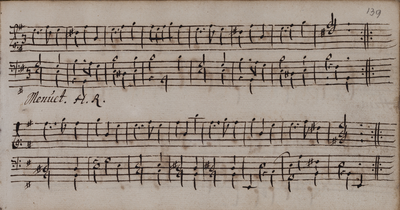 139
Menuet. A. R.